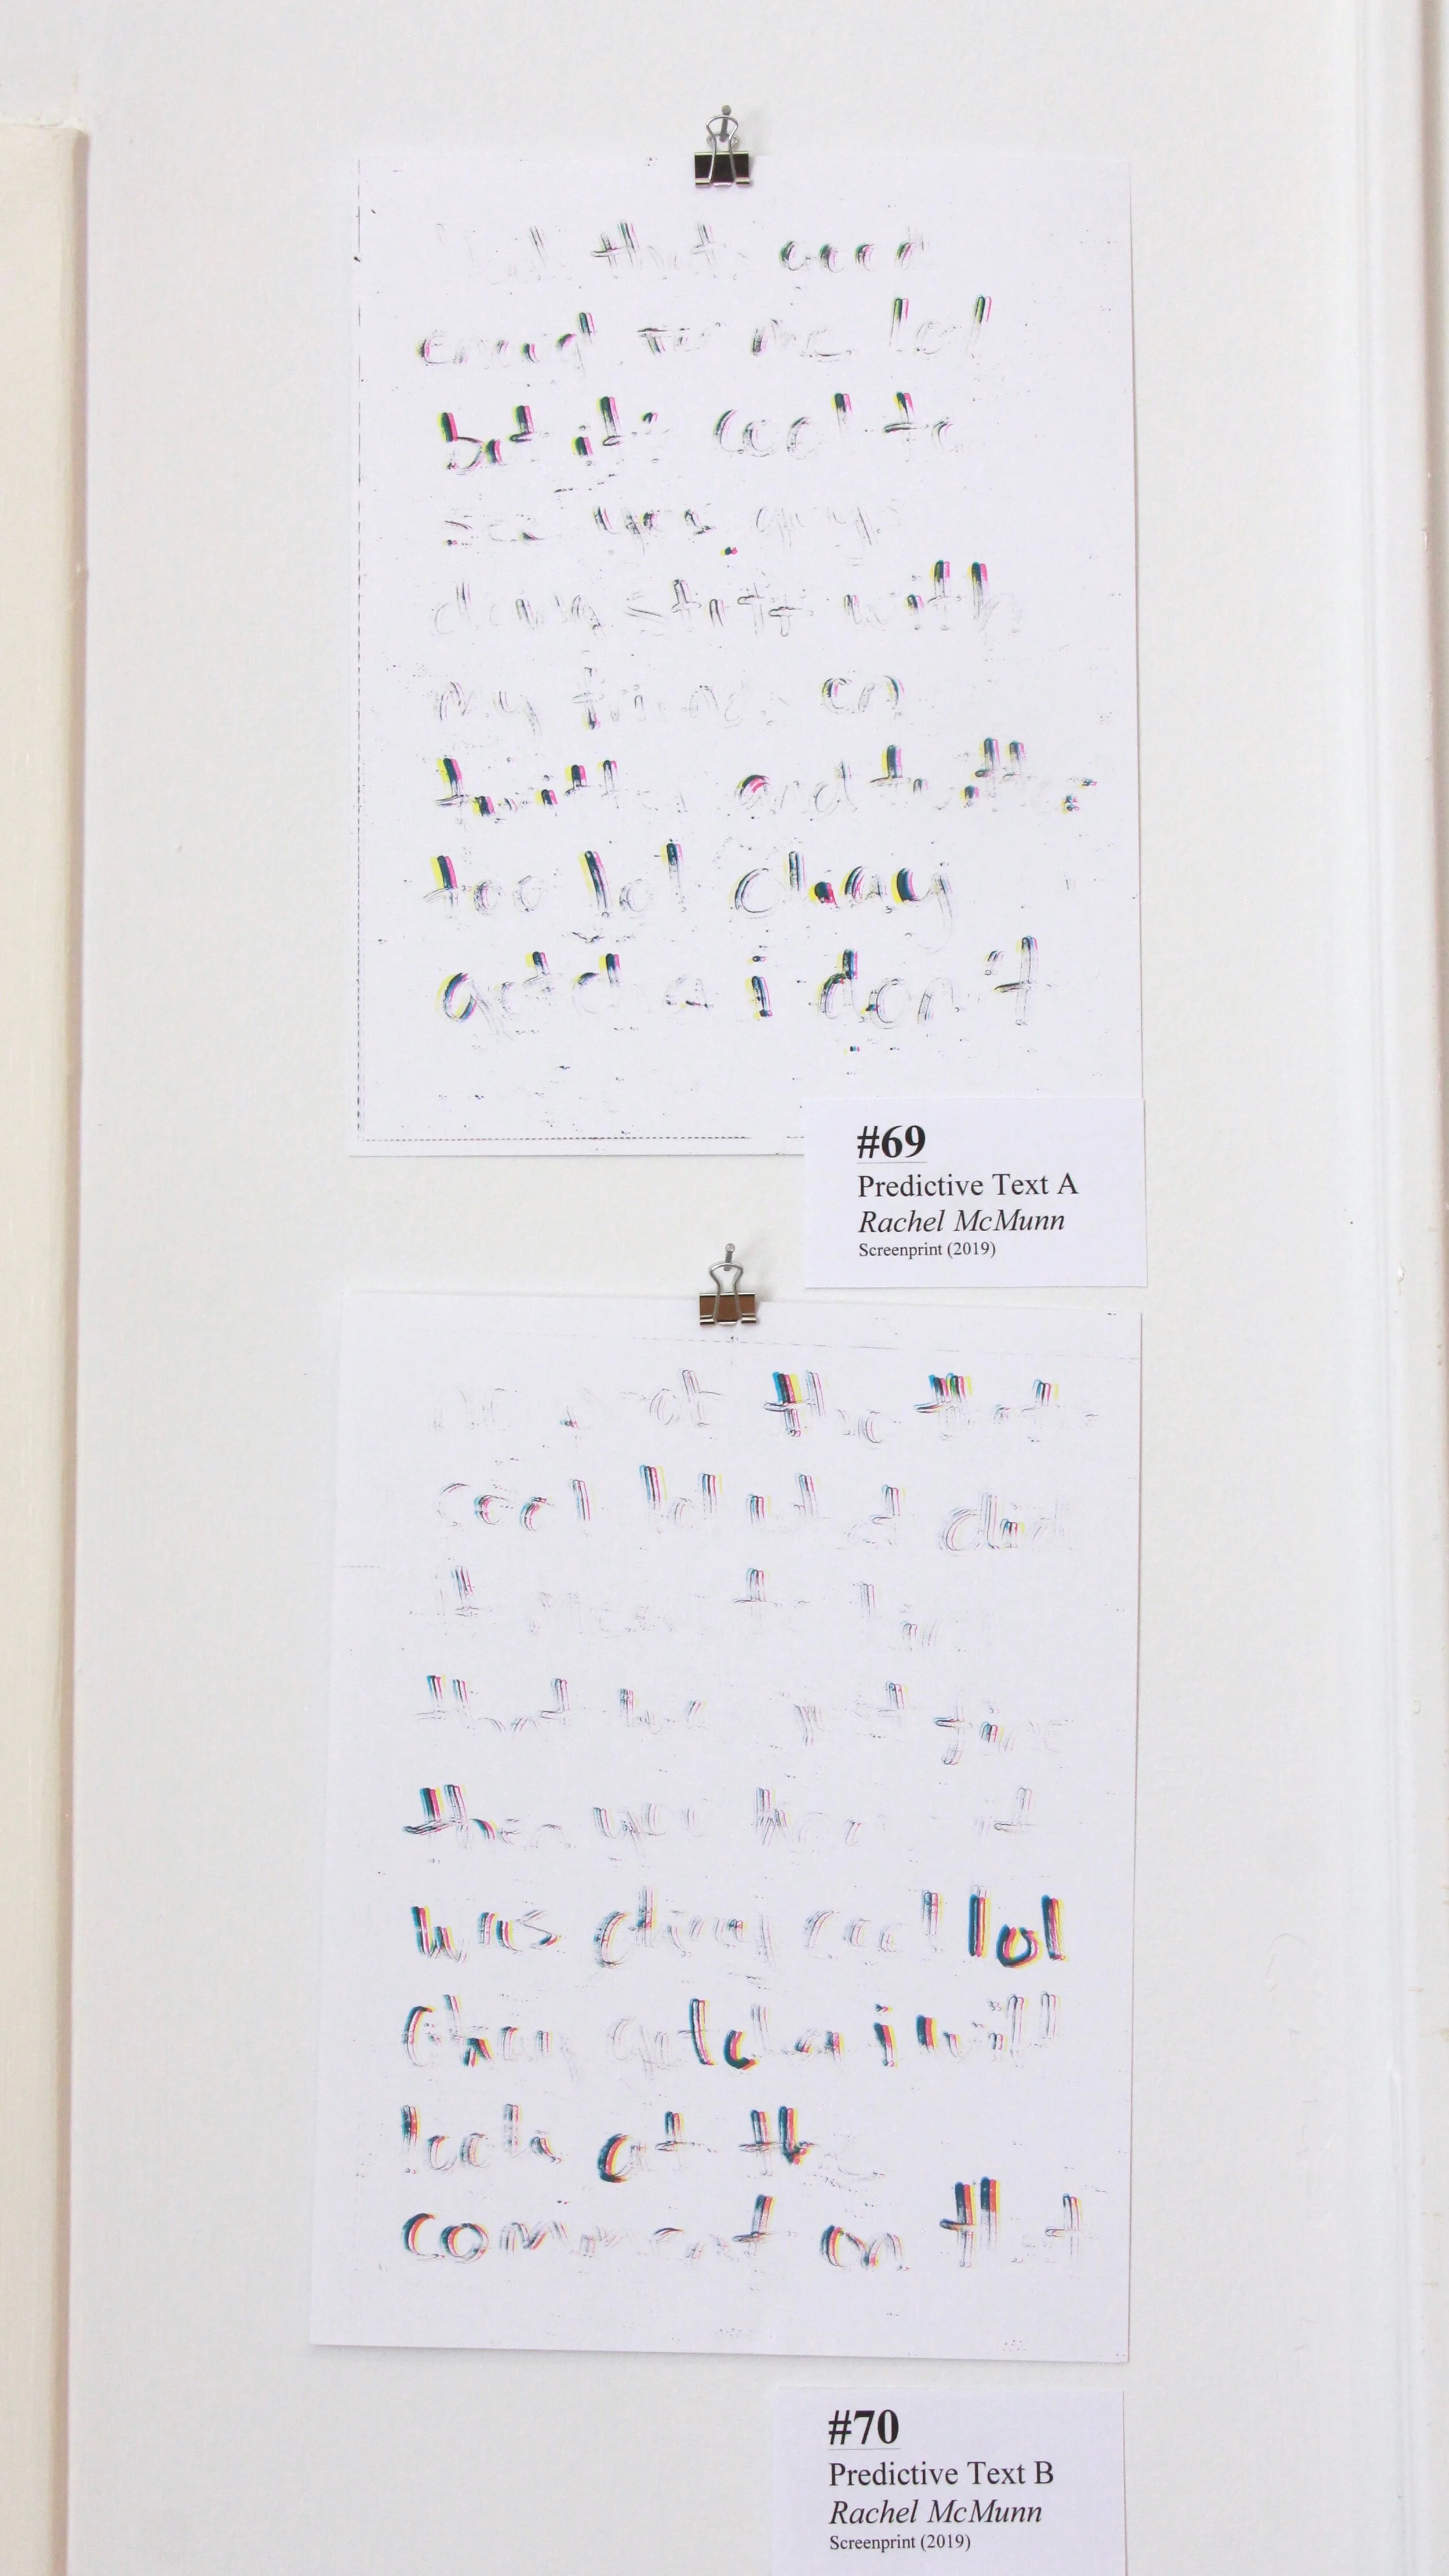 that good
enough for me lol
but it's cool to
see you guys
doing stuff with
my friends on
twitter and twitter
too lol okay
gotcha i don't
#69
Predictive Text A
Rachel McMunn
Screenprint (2019)
not the that
cool lol what did
it mean to
that but just fine
then you know it
was okay cool lol
okay gotcha i will
look at the
comment on that
#70
Predictive Text B
Rachel McMunn
Screenprint (2019)